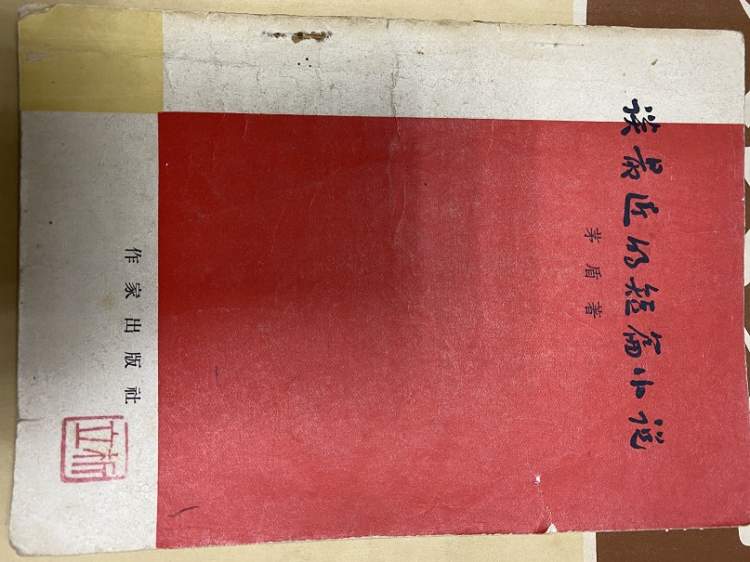 谈最近的短篇小说
茅盾著
作家出版社